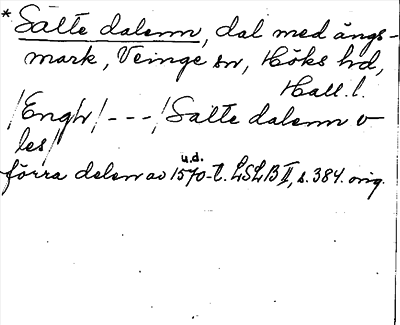 * Sälte dalenn, dal med ängs-
mark, Veinge sn, Höks hd,
Hall. l.
/Engh/ - - - /Salte dalenn v
les/
förra delen av 1570-t. LSLB II, s. 384. orig.
u.d.